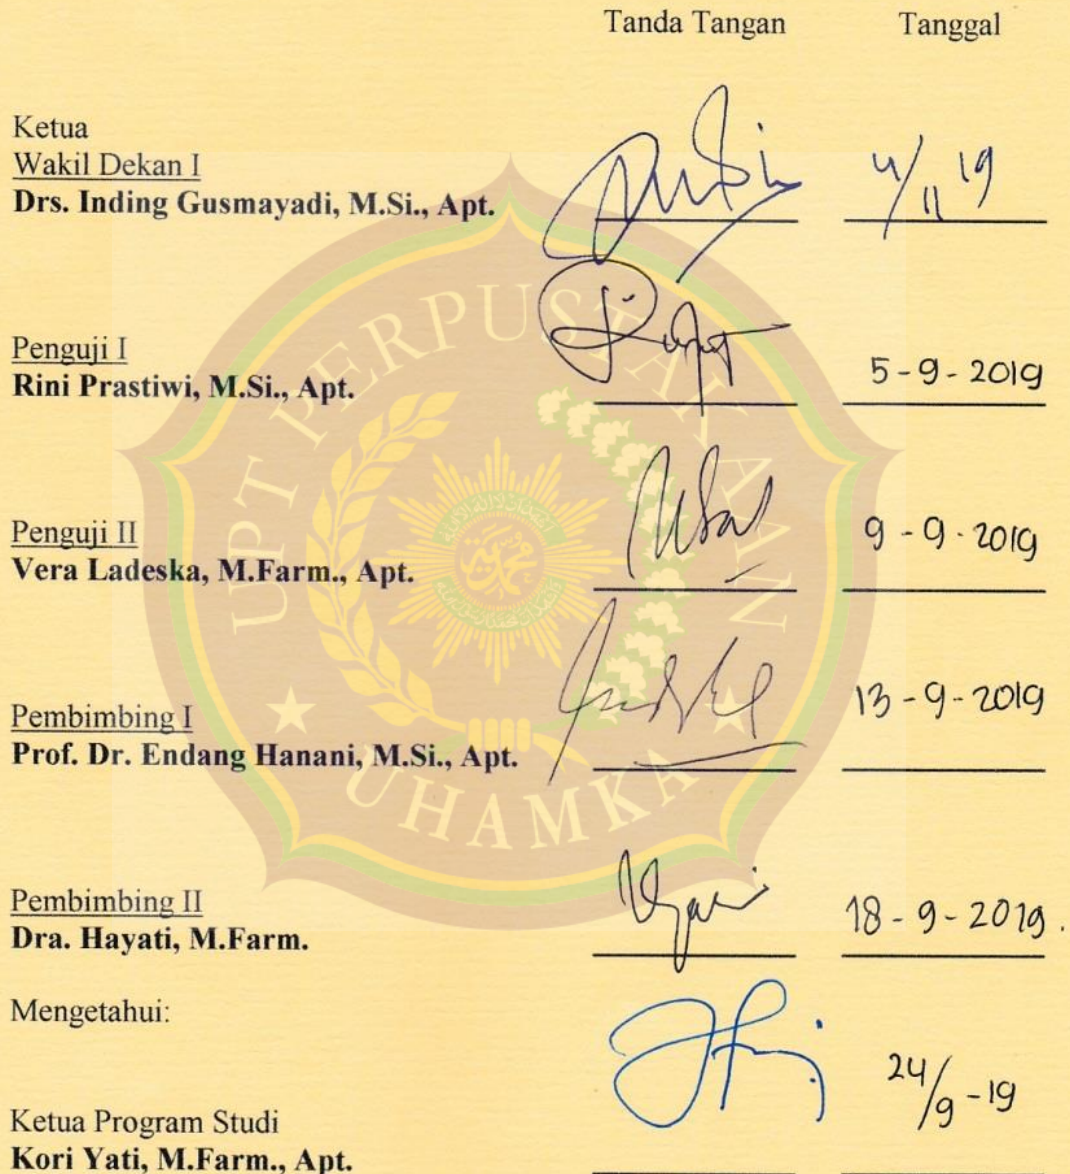 Tanda Tangan Tanggal
Ketua
Wakil Dekan I
Drs. Inding Gusmayadi, M.Si., Apt. 4/11 19
Penguji I
Rini Prastiwi, M.Si., Apt. 5-9-2019
Penguji II
Vera Ladeska, M.Farm., Apt. 9-9-2019
Pembimbing I
Prof. Dr. Endang Hanani, M.Si., Apt. 13-9-2019
Pembimbing II
Dra. Hayati, M.Farm. 18-9-2019.
Mengetahui:
Ketua Program Studi
Kori Yati, M.Farm., Apt. 24/9-19
UPT PERPUSTAKAAN
UHAMKA